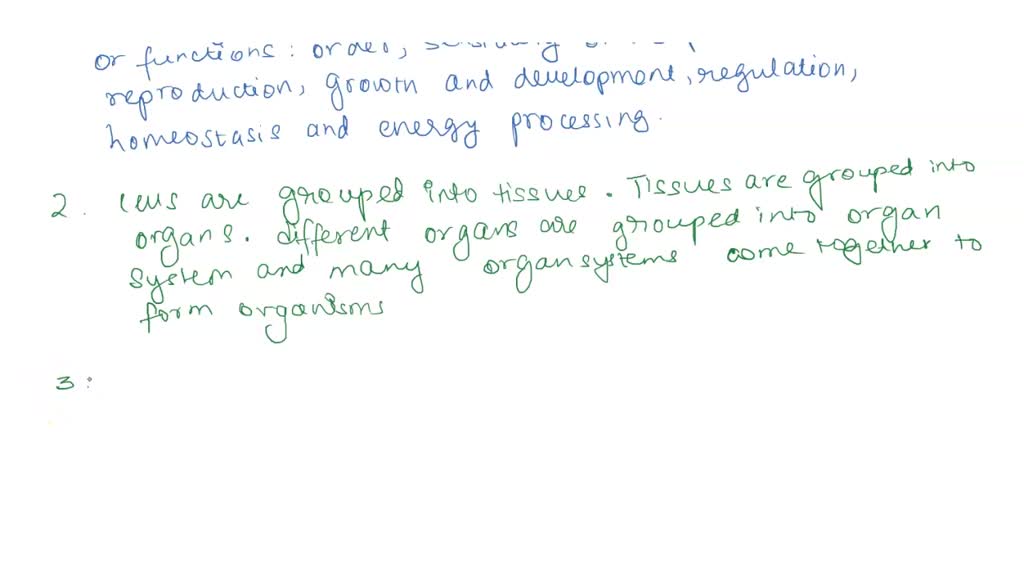 or functions: order,
reproduction, growth and development, regulation,
homeostasis and energy processing.
2. Cells are grouped into tissues. Tissues are grouped into
organs. different organs are grouped into organ
system and many organsystems come together to
form organisms
3: